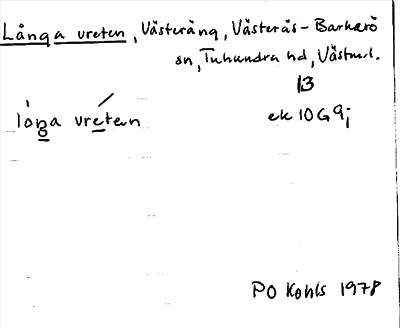 Långa vreten, Västeräng, Västerås-Barkarö
sn, Tuhundra hd, Västml.
13
lòŋa vréten ek 10G9j
PO Kohls 1978